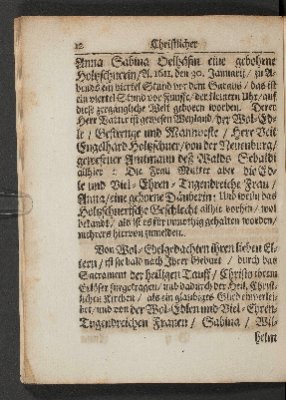 12 Christlicher
Anna Sabina Oelhäfin eine gebohrne
Holtzschuerin / A. 1611. den 30. Januarij / zu A-
bends ein viertel Stund vor dem Garaus / das ist
ein viertel Stund vor Fünffe / der kleinern Uhr / auf
diese zergängliche Welt geborn worden. Deren
Herr Vatter ist gewesen Weyland / der Wol-Ed-
le / Gestrenge und Mannveste / Herr Veit
Engelhard Holtzschuer / von der Neuenburg /
gewesener Amtmann deß Walds Sebaldi
allhier : Die Frau Mutter aber die Ed-
le und Viel-Ehren-Tugendreiche Frau /
Anna / eine geborne Däuberin: Und weiln das
Holtzschuerische Geschlecht allhie vorhin / wol
bekandt / als ist es für unnöthig gehalten worden /
mehrers hiervon zumelden.
Von Wol-Edelgedachten ihren lieben El-
tern / ist sie bald nach ihrer Gieburt / durch das
Sacrament der heiligen Tauff / Christo ihrem
Erlöser fürgetragen / und dadurch der Heil. Christ-
lichen Kirchen / als ein glaubiges Gliedeinverlei-
bet / und von der Wol-Edlen und Viel-Ehren-
Tugendreichen Frauen / Sabina / Wil-
helm